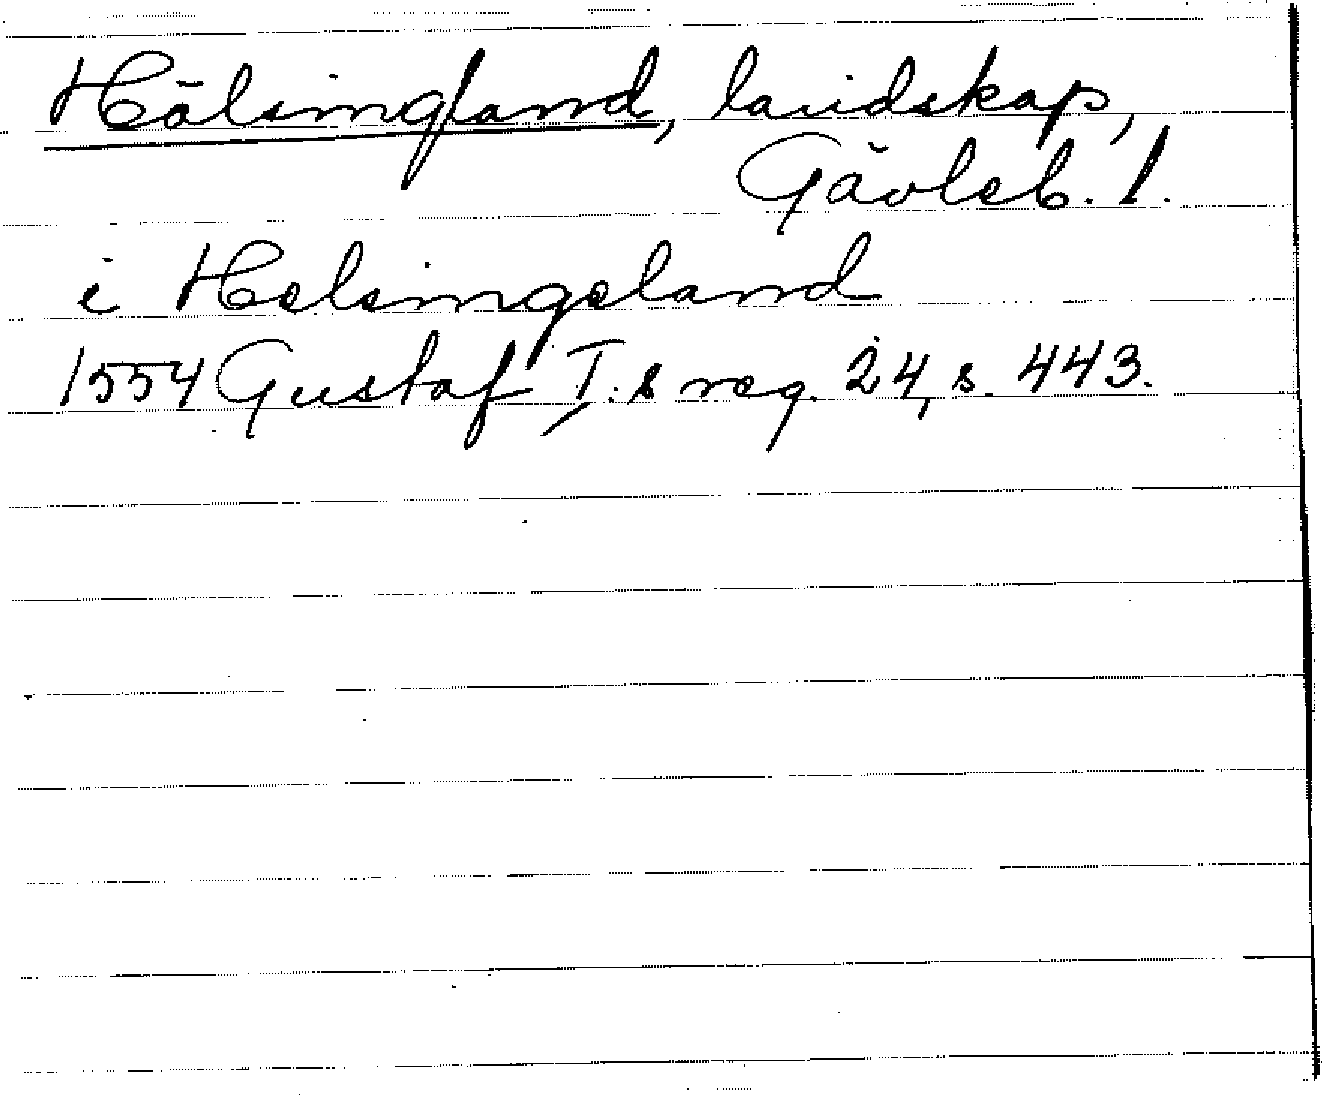 Hälsingland, landskap,
Gävleb. l.
i Helsingeland
1554 Gustaf I:s reg. 24, s. 443.